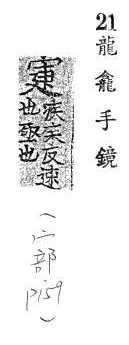 21 龍龕手鏡
寁
疾葉反速
也亟也
(宀部 p159)